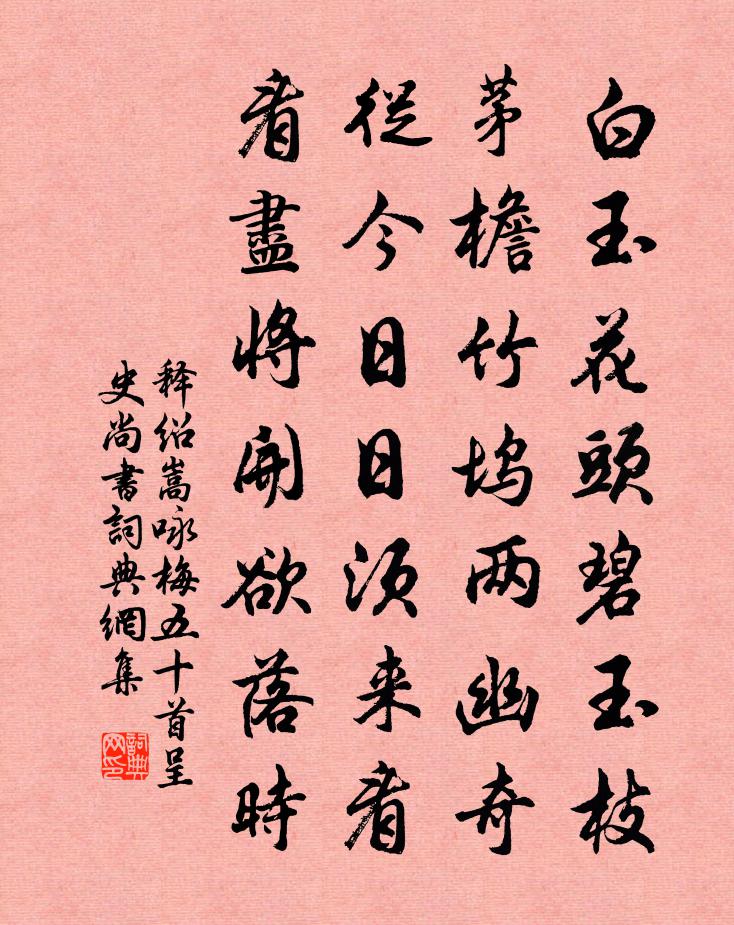 白玉花頭碧玉枝
茅檐竹坞兩幽奇
從今日日須来看
看盡將開欲落時
释绍嵩咏梅五十首呈
史尚書詞典網集
詞典网印